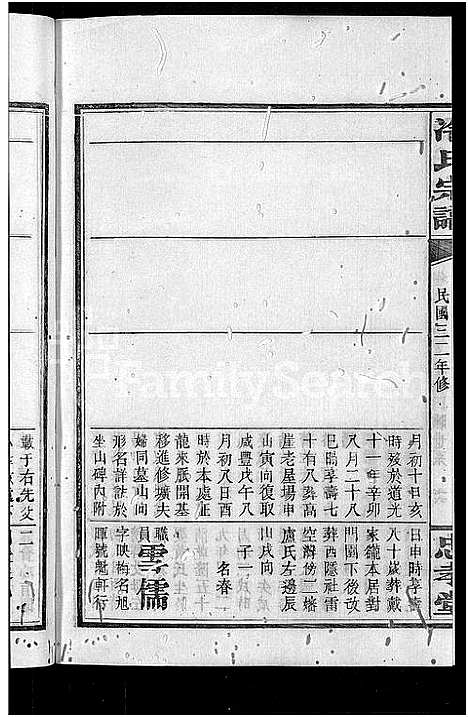 氏宗譜
民國三十一年修
忠孝堂
月初十日亥
時歿於道光
十一年辛卯
八月二十八
巳時享壽七
十有八葬高
崖老屋場申
山寅向復取
咸豐戊午八
月初八日酉
時於本處正
龍來脈開基
移進修壙夫
婦同墓山向
形名詳註於
坐山碑內附
日申時享壽
八十歲葬戴
家鏡本居對
門園下後改
葬西隱社雷
空灣傍二
盧氏左邊辰
山戌向
子一
名春
職員雲儒
字映梅名旭
暉號魁軒行
載于右先
二
FamilySearch